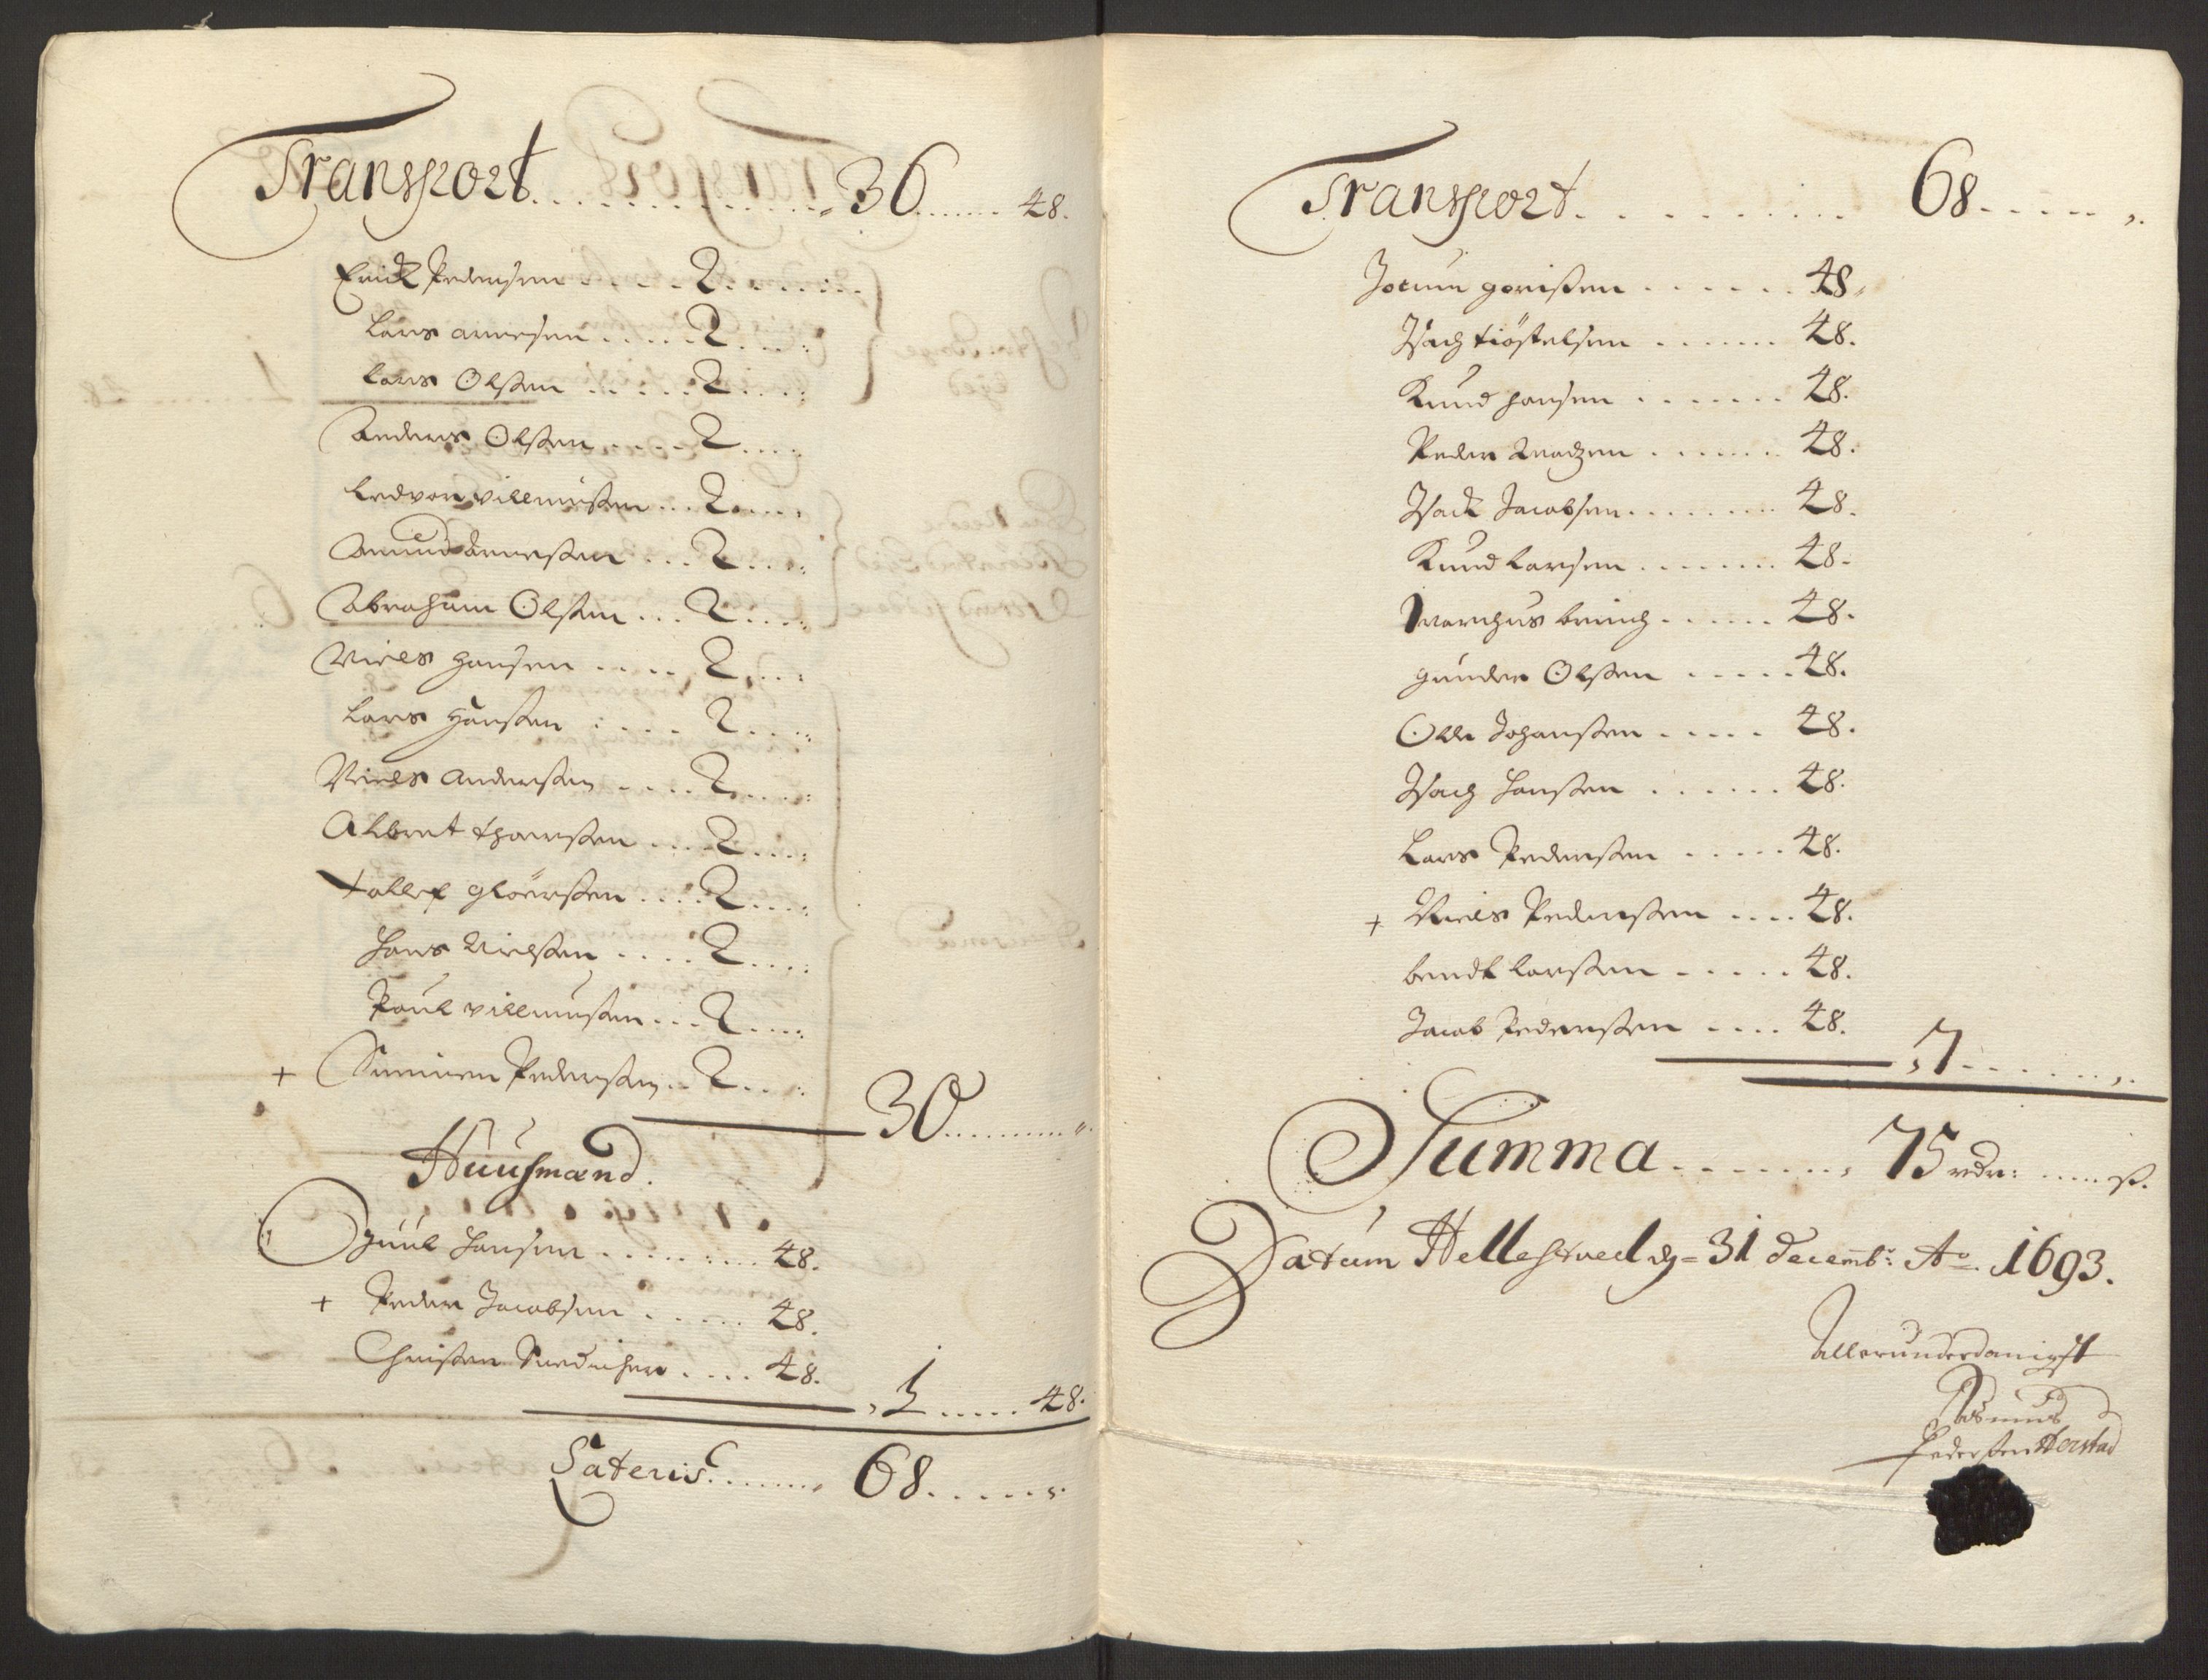 Transport . . . . . . 36 . . . 48.
Erick Pedersen . . . . 2 . . . .
Lars arnesen . . . . 2 . . . .
Lars Olßen . . . . 2 . . . .
Anders Olßen . . . . 2 . . . .
Ledvor villumßen . . . 2 . . . .
Amund Arneßen . . . 2 . . . .
Abraham Olßen . . . 2 . . . .
Niels Hansen . . . . 2 . . . .
Lars Hanßen . . . . 2 . . . .
Niels Anderßen . . . . 2 . . . .
Albret thorsßen . . . 2 . . . .
tollef gloerßen . . . . 2 . . . .
Hans Nielßen . . . . 2 . . . .
Poul villumßen . . . 2 . . . .
+ Simmen Pederßen . . 2 . . . .
30 . . . . . „
Huusmænd.
Juul Hansen . . . . . . 48.
+ Peder Jacobsen . . . . . 48.
Christen . . . . 48.
1 . . . . 48.
Lateris . . . . . 68 . . . . .
Transport . . . . . . . . 68 . . . . „
Jocum gorißen . . . . . . 48.
Isach tiöstelsen . . . . . . 48.
Knud hansen . . . . . . 48.
Peder . . . . . . 48.
Isack Jacobsen . . . . . . 48.
Knud Larsen . . . . . . 48.
Marchus . . . . . . 48.
gunder Olßen . . . . . 48.
Olle Johanßen . . . . . 48.
Isach Hanßen . . . . . . 48.
Lars Pederßen . . . . . 48.
+ Niels Pederßen . . . . 48.
bendt Larßen . . . . . 48.
Jacob Pederßen . . . . 48.
7 . . . . . . „
Summa . . . . . . 75 rdr: . . . . ß.
Datum Hellestved d= 31 decemb: Ao 1693.
allerunderdanigst
Rasmus
Pederßen Herstad